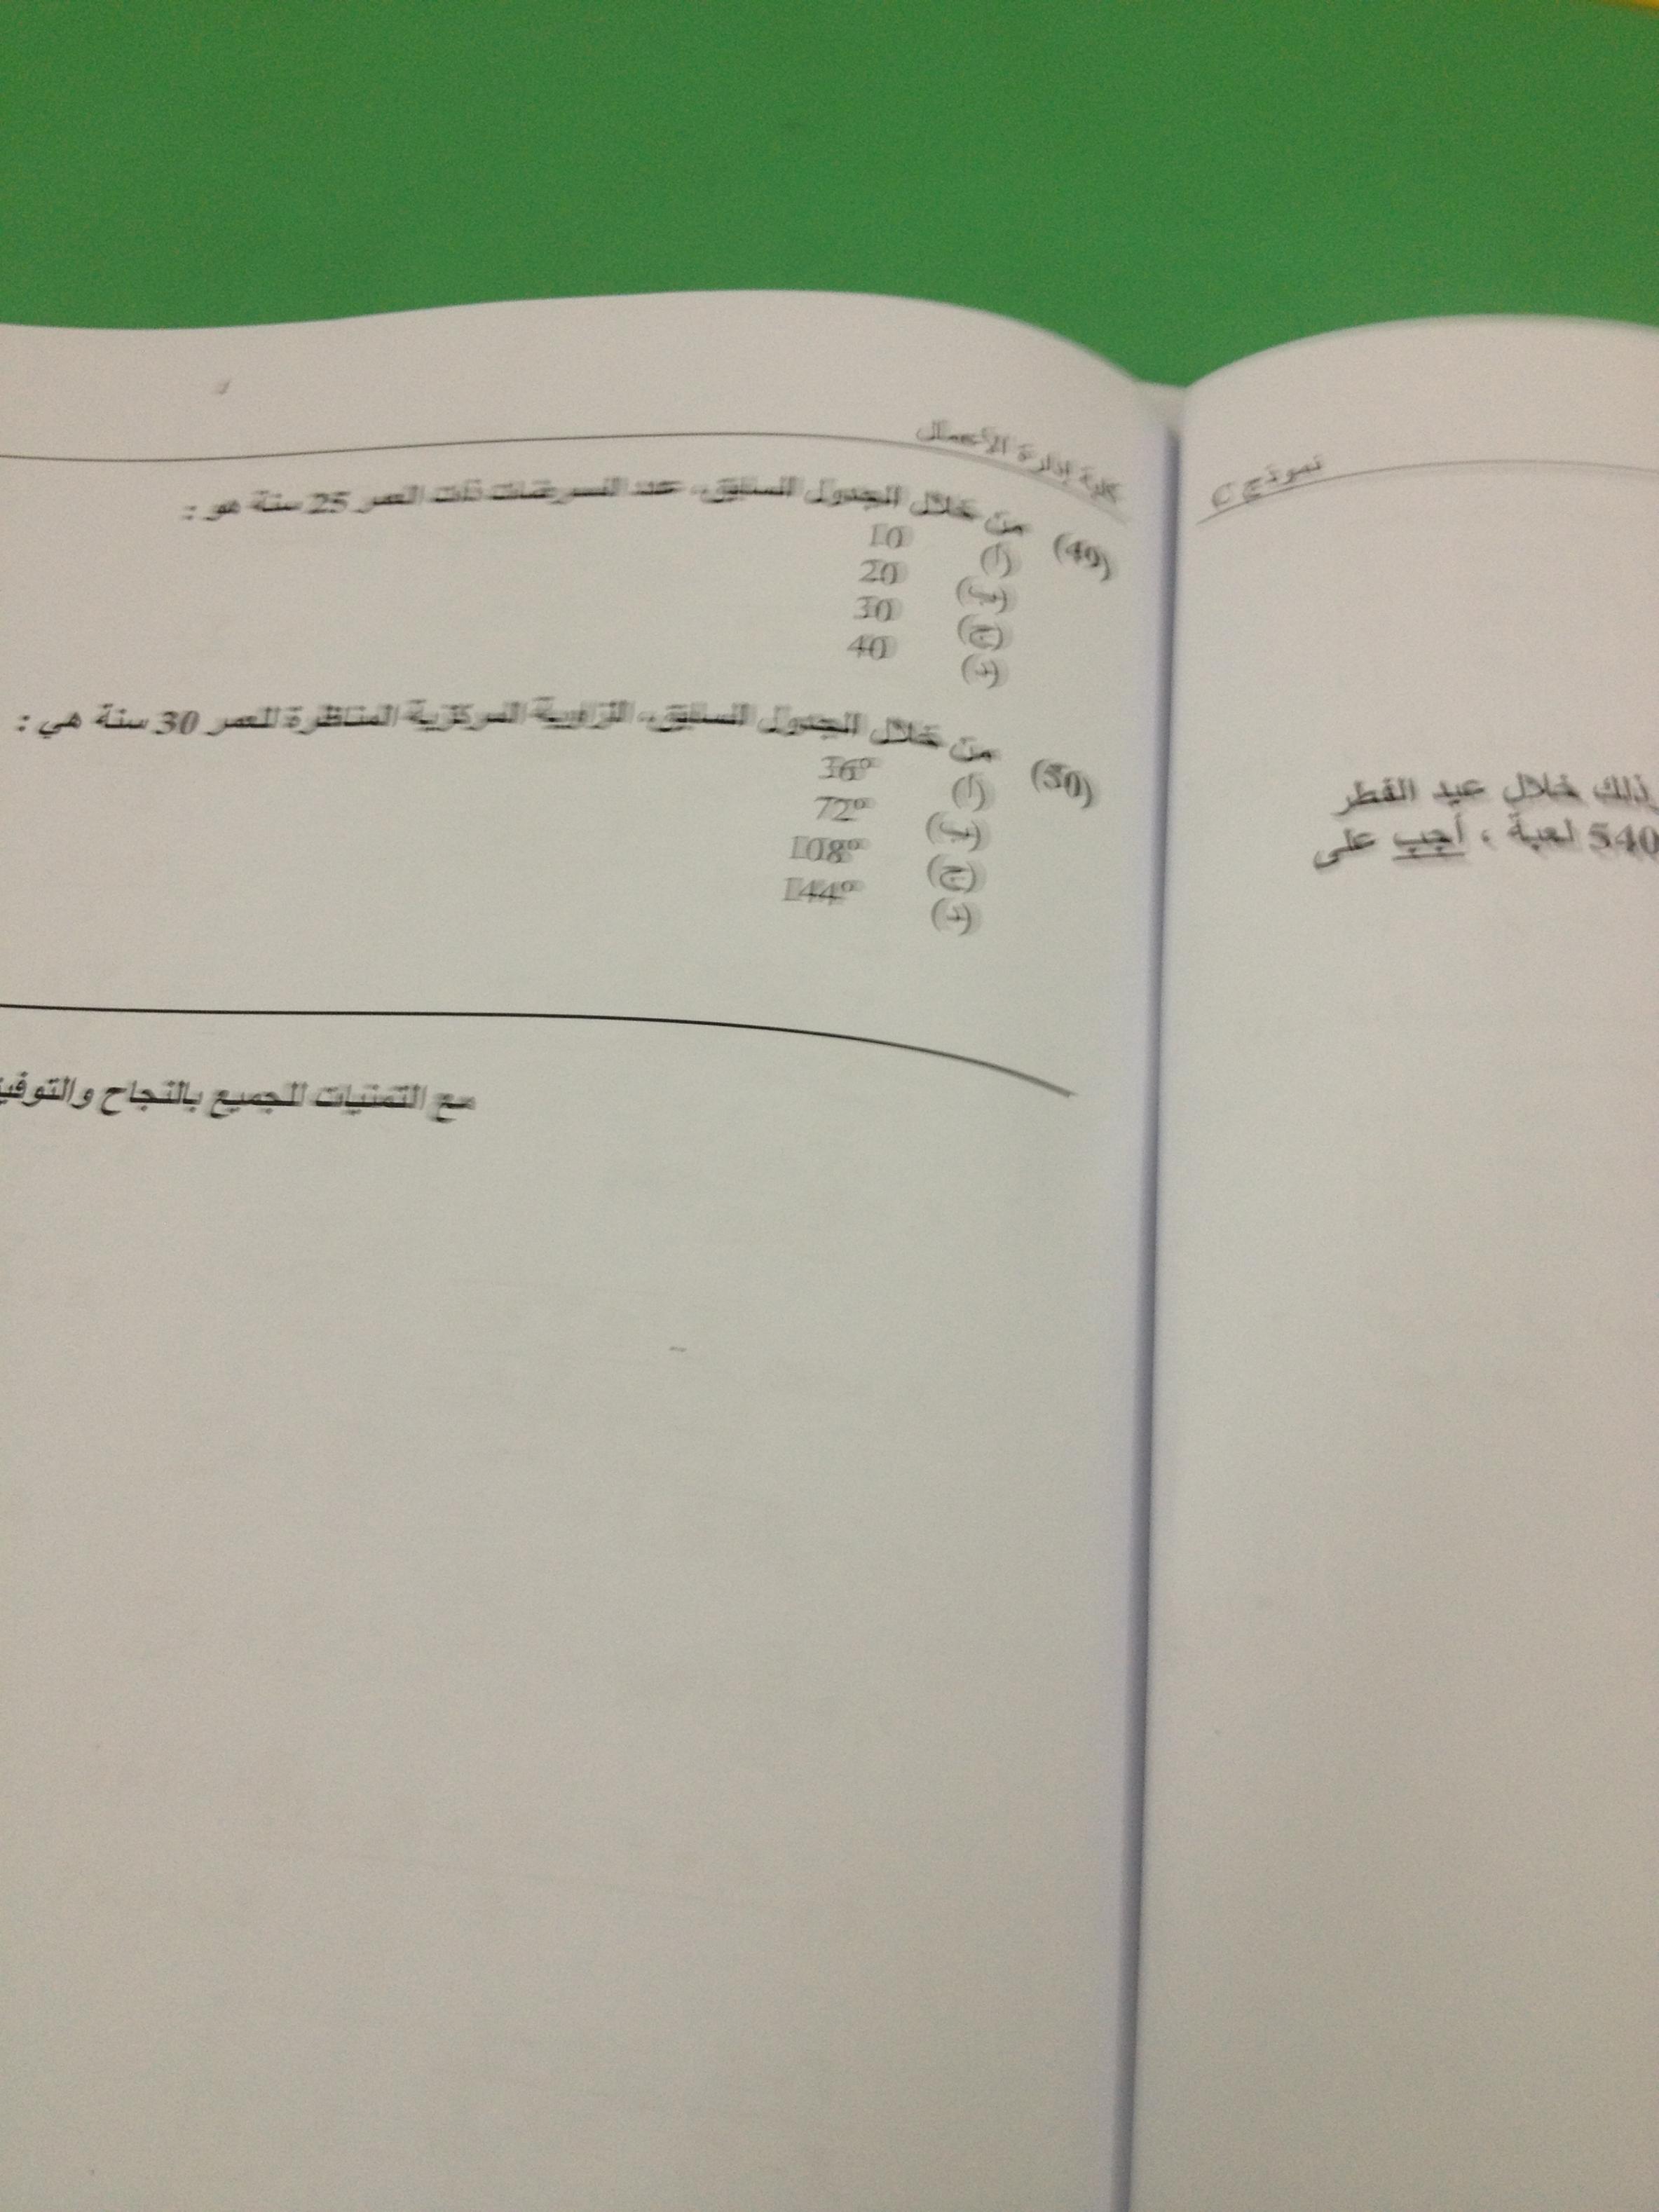 نموذج C
ذلك خلال عيد الفطر
540 لعبة ، أجب على
كلية إدارة الأعمال
(49) من خلال الجدول السابق، عدد الممرضات ذات العمر 25 سنة هو :
(أ) 10
(ب) 20
(ج) 30
(د) 40
(50) من خلال الجدول السابق، الزاوية المركزية المناظرة للعمر 30 سنة هي :
(أ) 36°
(ب) 72°
(ج) 108°
(د) 144°
مع التمنيات للجميع بالنجاح والتوفيق